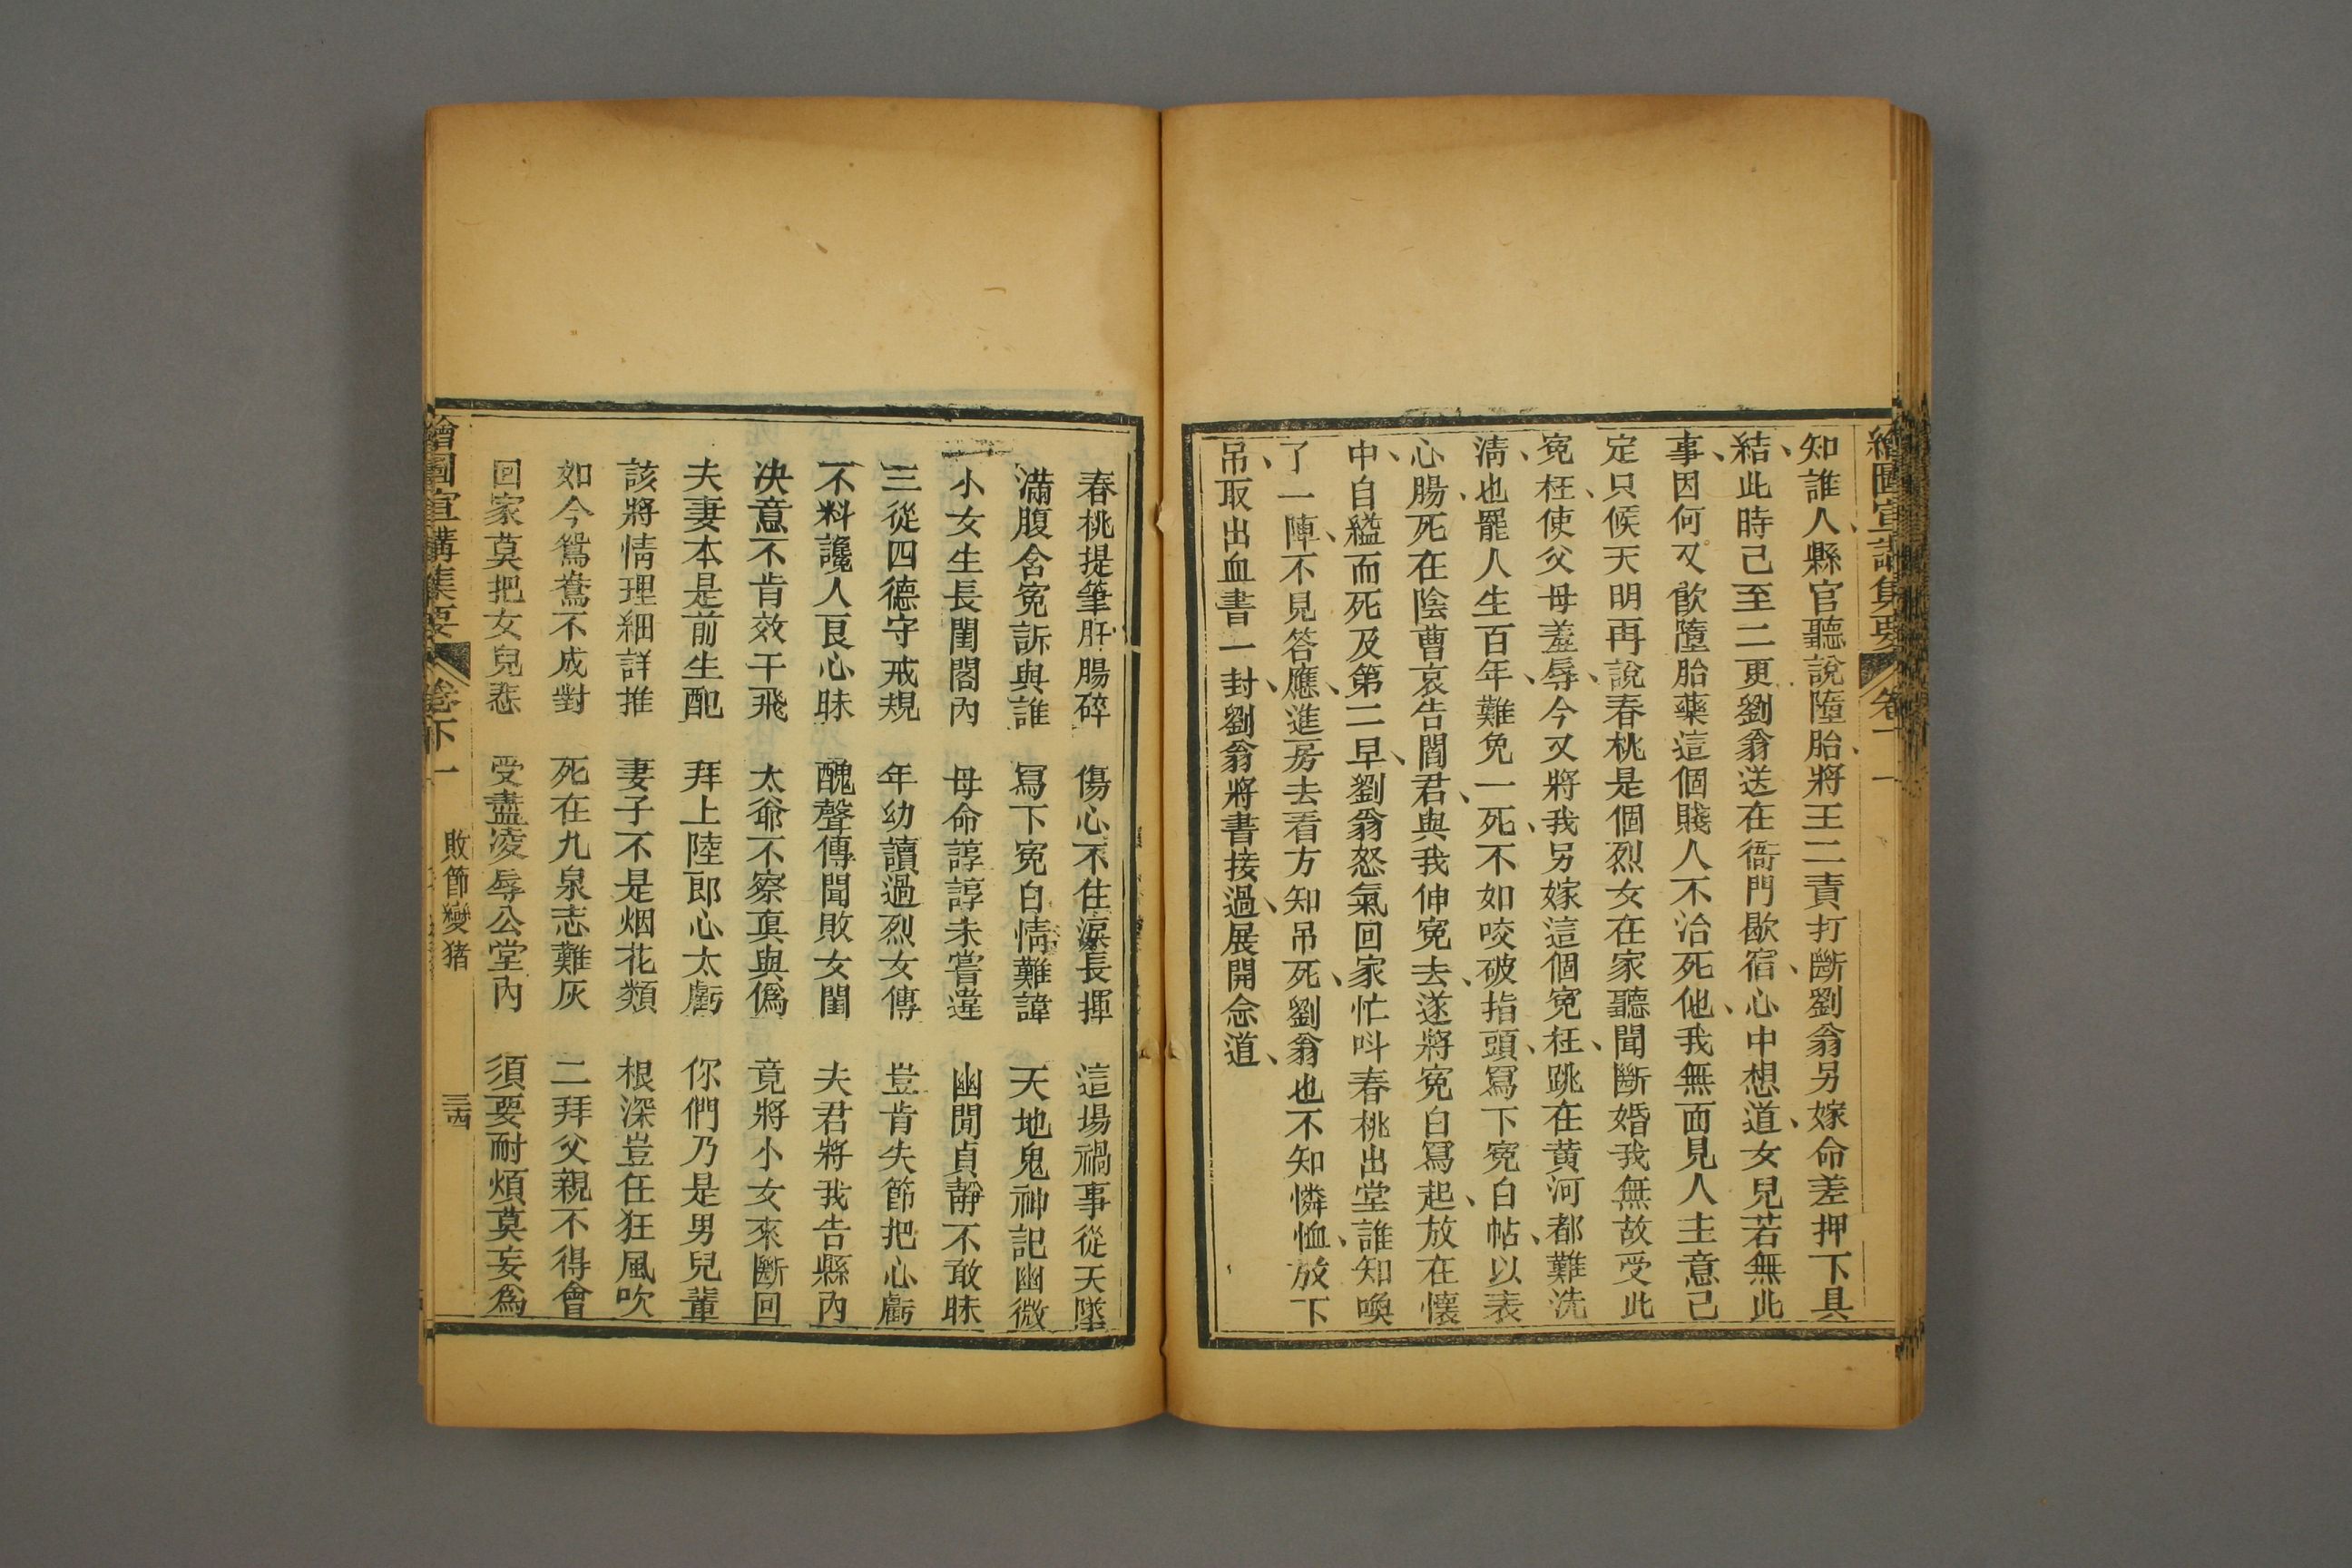 知誰人縣官聽說墮胎將王二責打斷劉翁另嫁命差押下具
結此時己至二更劉翁送在衙門歇宿心中想道女兒若無此
事因何又飲墮胎藥這個賤人不治死他我無面見人主意己
定只候天明再說春桃是個烈女在家聽聞斷婚我無故受此
寃枉使父母羞辱今又將我另嫁這個寃枉跳在黄河都難洗
淸也罷人生百年難免一死不如咬破指頭寫下寃白帖以表
心腸死在陰曹哀告閻君與我伸寃去遂將寃白寫起放在懷
中自縊而死及第二早劉翁怒氣回家忙呌春桃出堂誰知喚
了一陣不見答應進房去看方知吊死劉翁也不知憐恤放下
吊取出血書一封劉翁將書接過展開念道
春桃提筆肝腸碎　傷心不住淚長揮　這場禍事從天墜
滿腹含寃訴與誰　寫下寃白情難諱　天地鬼神記幽微
小女生長閨閣內　母命諄諄未嘗違　幽閒貞靜不敢昧
三從四德守戒規　年幼讀過烈女傳　豈肯失節把心虧
不料讒人良心昧　醜聲傳聞敗女閨　夫君將我告縣內
决意不肯效于飛　太爺不察眞與僞　竟將小女來斷回
夫妻本是前生配　拜上陸郎心太虧　你們乃是男兒輩
該將情理細詳推　妻子不是烟花類　根深豈任狂風吹
如今鴛鴦不成對　死在九泉志難灰　二拜父親不得會
回家莫把女兒悲　受盡凌辱公堂內　須要耐煩莫妄爲
繪圖宣講集要　卷下一　敗節變猪　三四